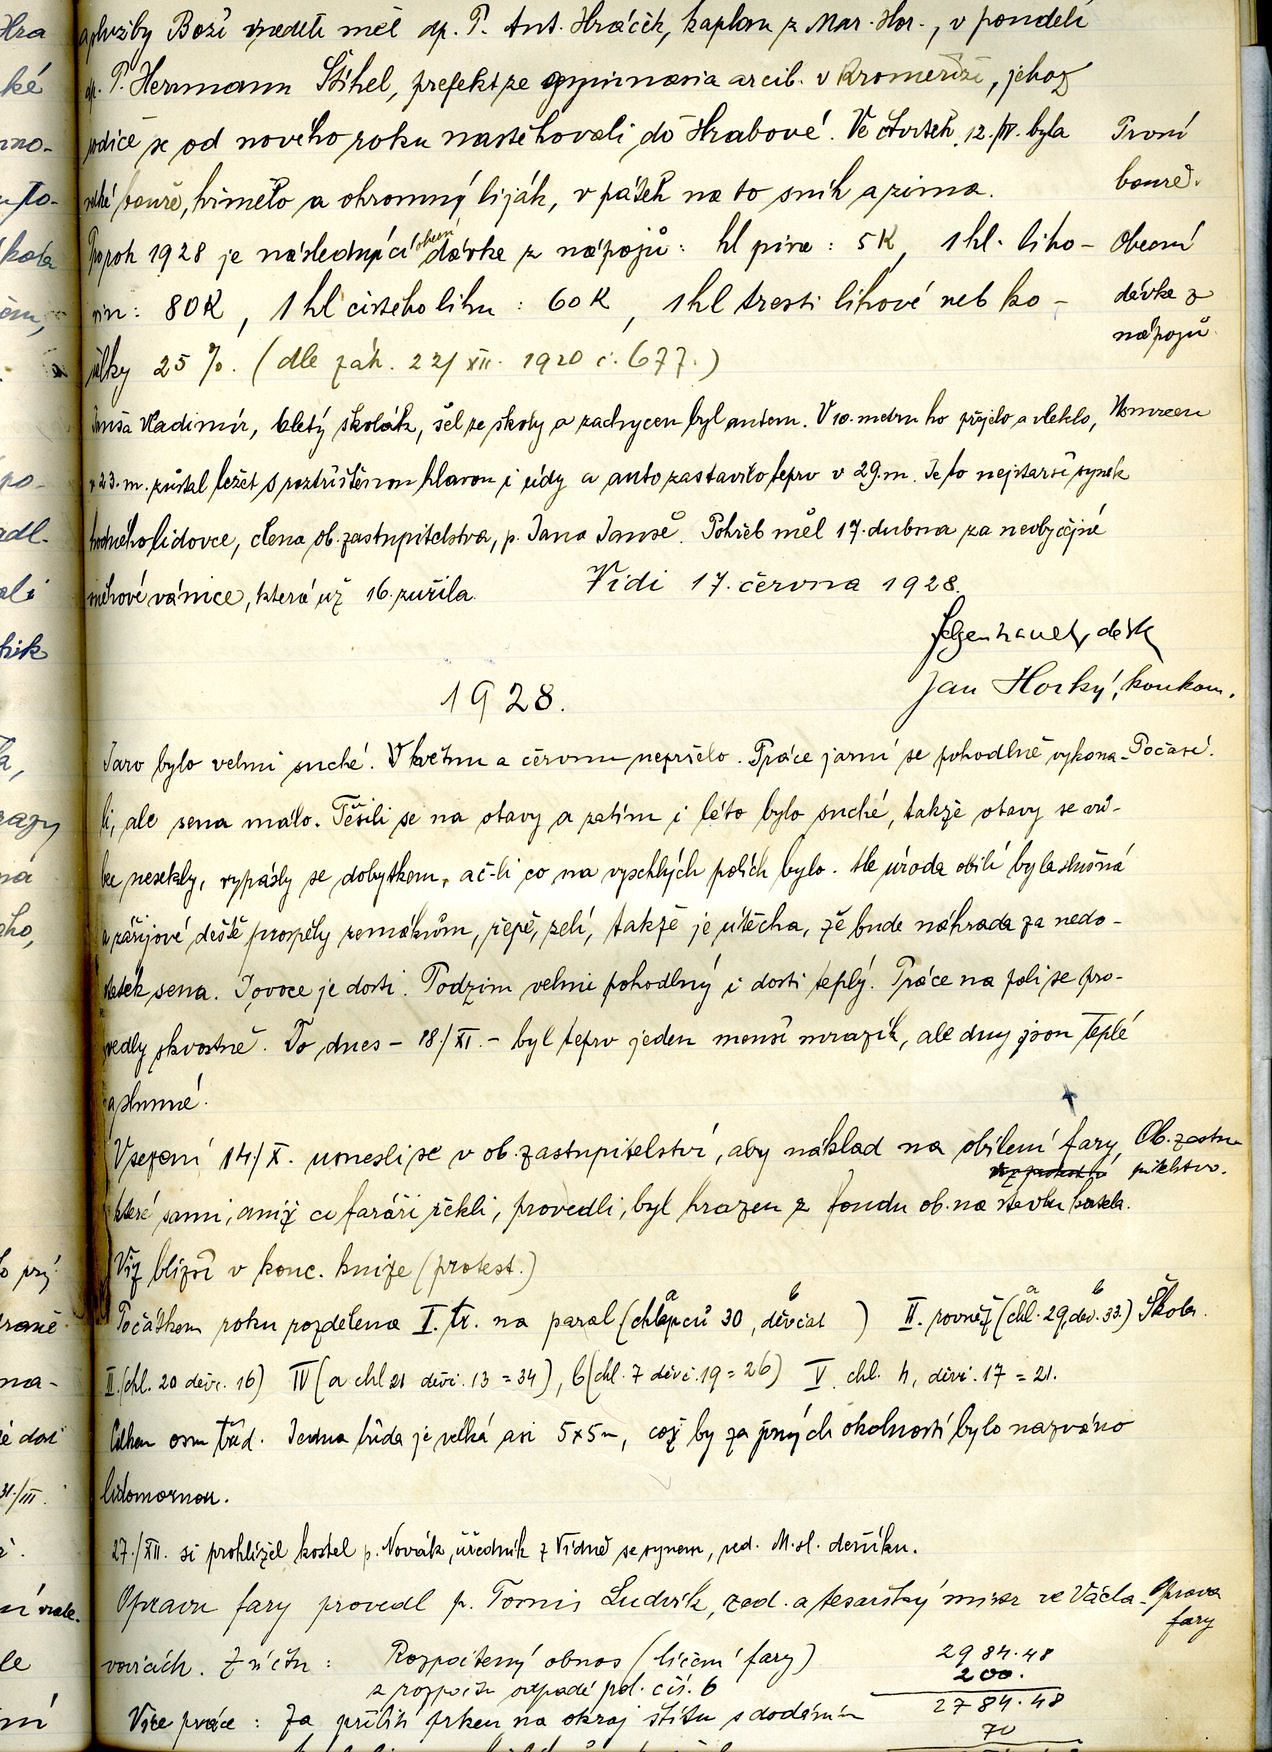 služby Boží v neděli měl dp. P. Ant. Hráček, kaplan z Mar. Hor., v pondělí
dp. P. Hermann Štihel, prefekt ze gymnasia arcib. v Kroměříži, jehož
rodiče se od nového roku nastěhovali do Hrabové. Ve čtvrtek 12./IV. byla
První
velká bouře, hřmělo a ohromný liják, v pátek na to sníh a zima.
bouře.
Pro rok 1928 je následující obecní dávka z nápojů: hl piva: 5K, 1 hl. liho-
Obecní
vin: 80K, 1 hl čistého lihu: 60K, 1 hl tresti lihové neb ko-
dávka z
nápojů
řalky 25%. (dle zák. 22/XII. 1920 č. 677.)
Janša Vladimír, 6letý školák, šel ze školy a zachycen byl autem. V 10. metru ho přejelo a vleklo,
v 23. m. zůstal ležet s roztříštěnou hlavou i údy a auto zastavilo teprv v 29. m. Je to nejstarší synek
hodného lidovce, člena ob. zastupitelstva, p. Jana Janše. Pohřeb měl 17. dubna za neobyčejné
sněhové vánice, která už 16. zuřila. Vidi 17. června 1928.
děk
Jan Horký, konkom.
1928.
Jaro bylo velmi suché. V květnu a červnu nepršelo. Práce jarní se pohodlně vykona-
Počasí.
li, ale sena málo. Těšili se na otavy a zatím i léto bylo suché, takže otavy se vů-
bec nesekly, vypásly se dobytkem, ač-li co na vyschlých polích bylo. Ale úroda obilí byla slušná
a zářijové deště prospěly zemákům, řepě, zelí, takže je útěcha, že bude náhrada za nedo-
statek sena. I ovoce je dosti. Podzim velmi pohodlný i dosti teplý. Práce na poli se pro-
vedly skvostně. Do dnes - 18./XI. - byl teprv jeden menší mrazík, ale dny jsou teplé
a slunné.
V sezení 14/X. usnesli se v ob. zastupitelství, aby náklad na obílení fary,
Ob. zastu-
pitelstvo.
které sami, aniž co faráři řekli, provedli, byl hrazen z fondu ob. na stavbu kostela.
Viz bližší v konc. knize (protest.)
Počátkem roku rozdělena I. tř. na paral (a chlapců 30, b děvčat ) II. rovněž (a chl. 29, b děv. 33.)
Škola.
II. (chl. 20 děvč. 16) IV (a chl 21 děvč. 13 = 34), b (chl. 7 děvč. 19 = 26) V. chl. 4, děvč. 17 = 21.
Celkem osm tříd. Jedna třída je velká asi 5x5m, což by za jiných okolností bylo nazváno
lidomornou.
27./XII. si prohlížel kostel p. Novák, úředník z Vídně se synem, red. M.sl. deníku.
Opravu fary provedl p. Tomis Ludvík, zed. a tesařský mistr ve Václa-
Oprava
fary
vovicích. Z účtu: Rozpočtený obnos (líčení fary) 2984.48
z rozpočtu odpadá pol. čís. 6 200.
2784.48
Více práce: Za přibití prken na okraj štítu s dodáním 70